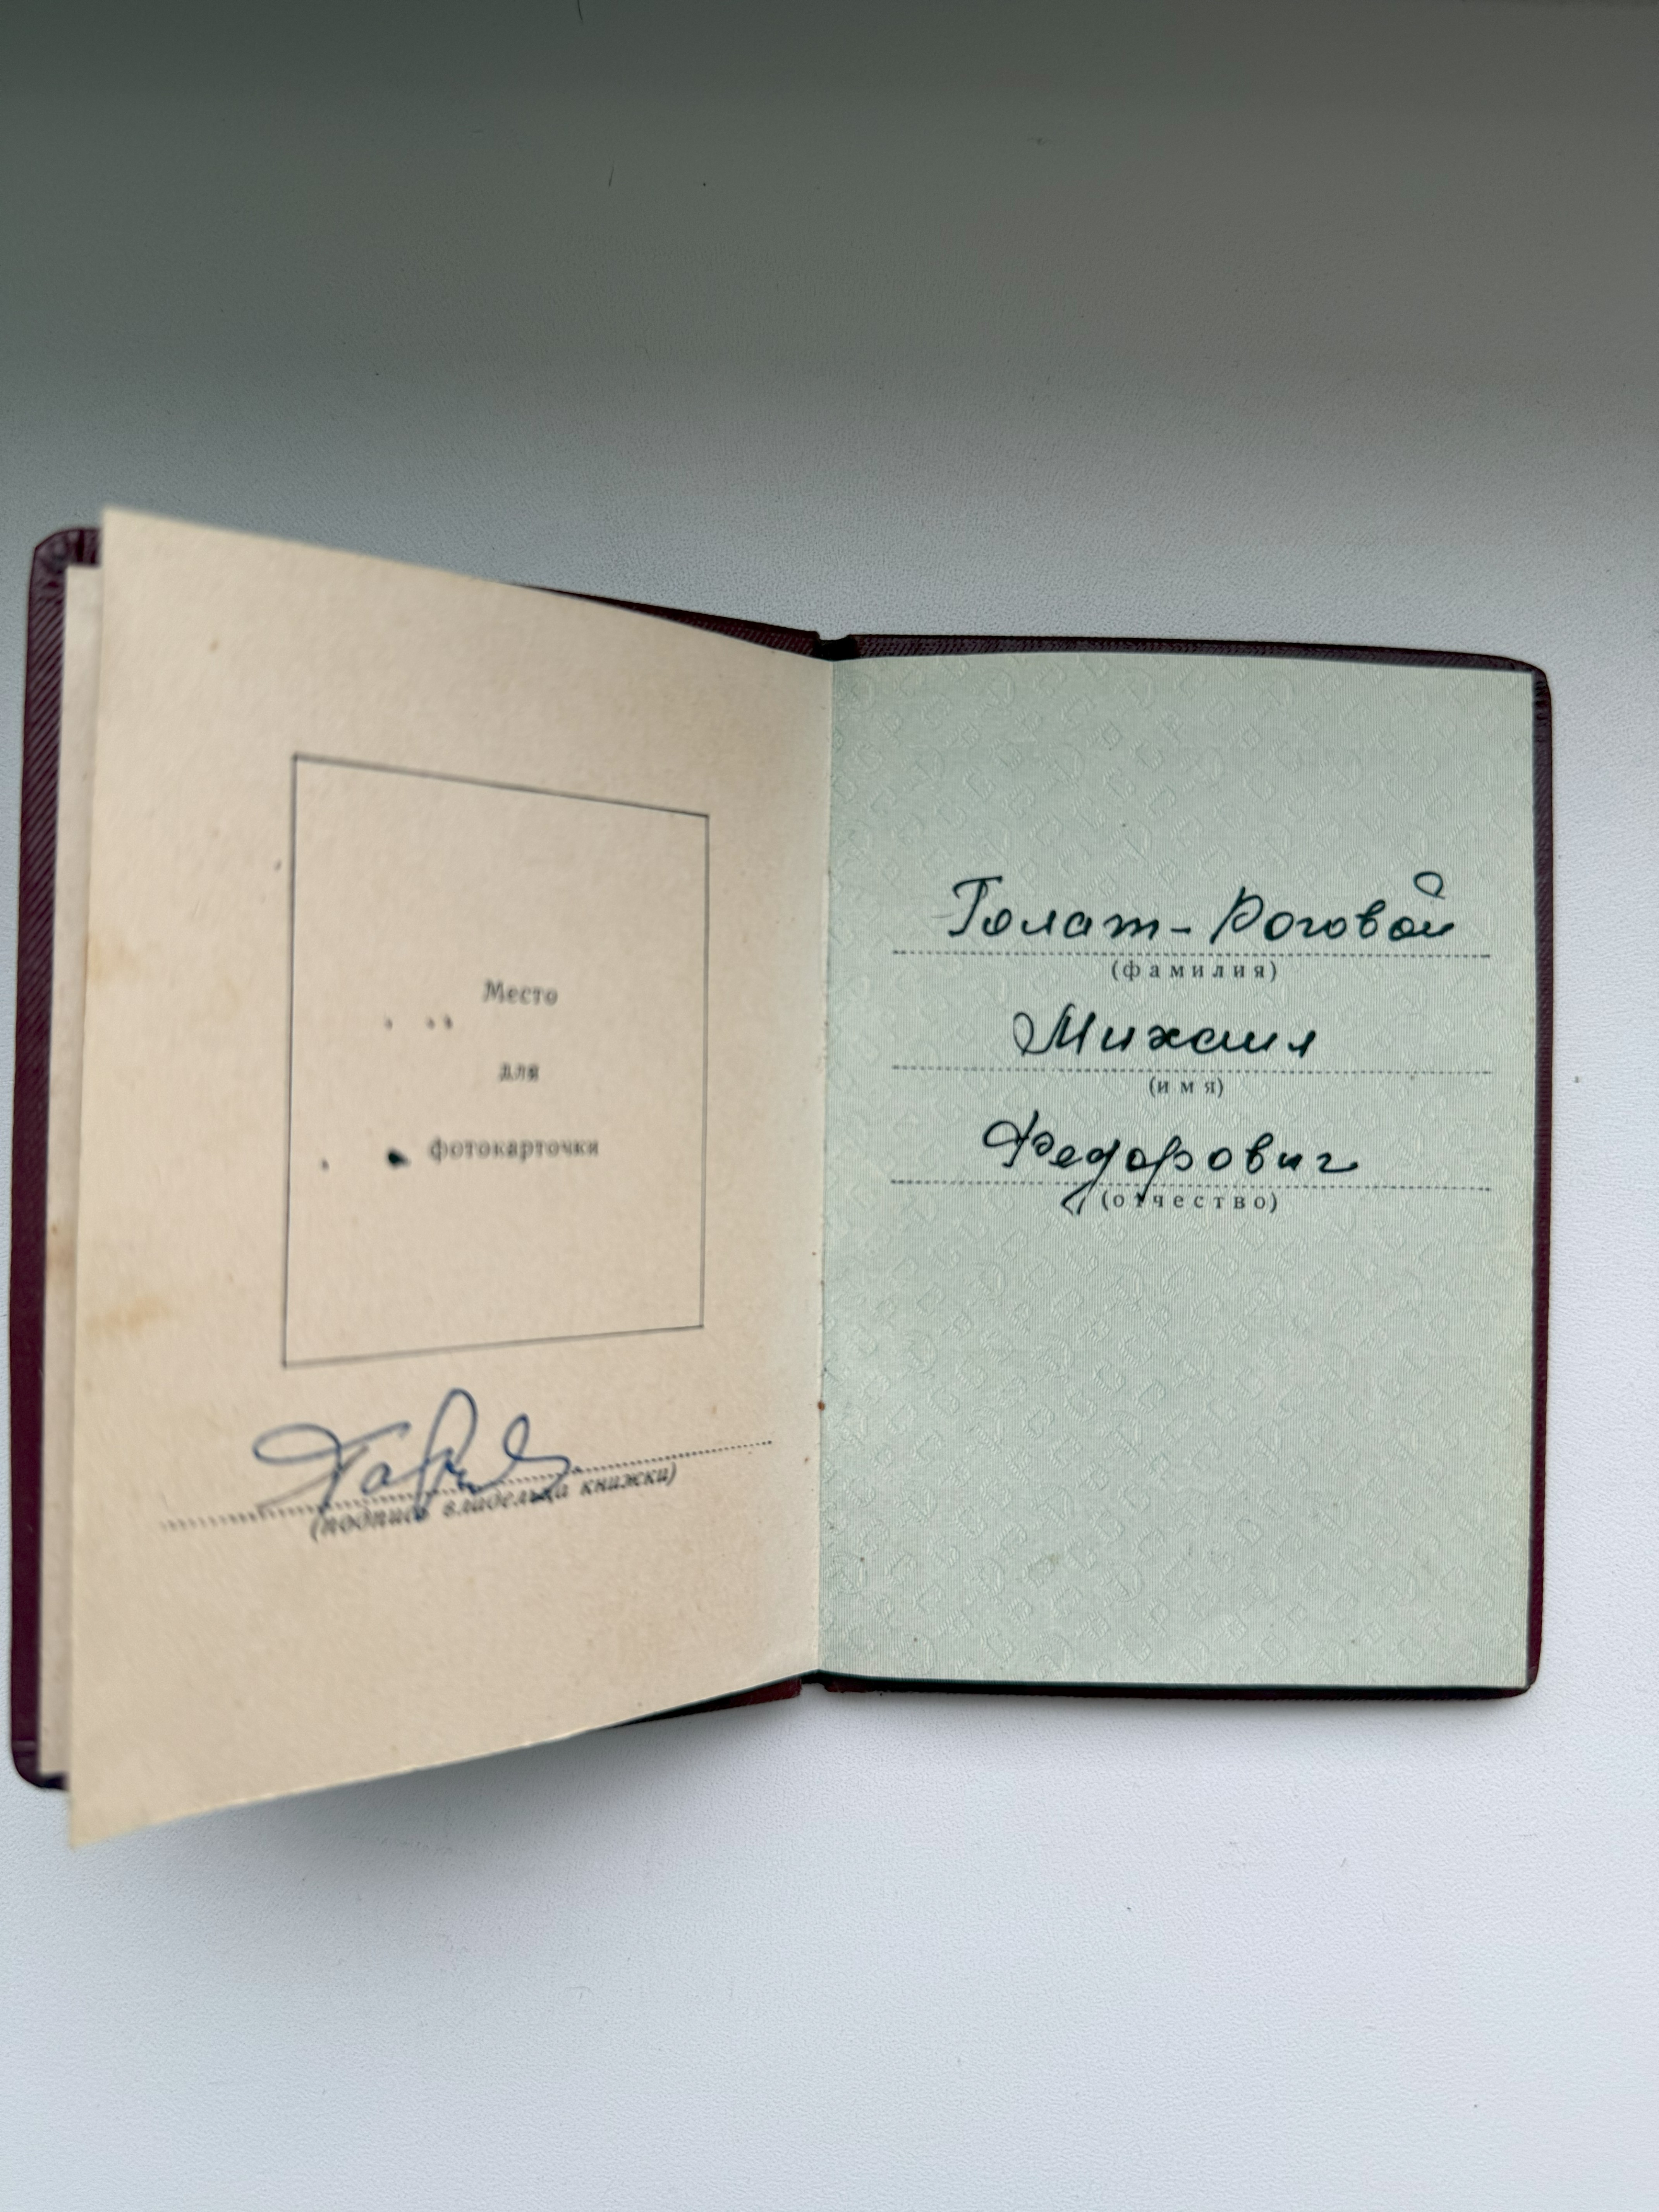 Место
для
фотокарточки
(подпись владельца книжки)
Голат-Роговой
(фамилия)
Михаил
(имя)
Федорович
(отчество)